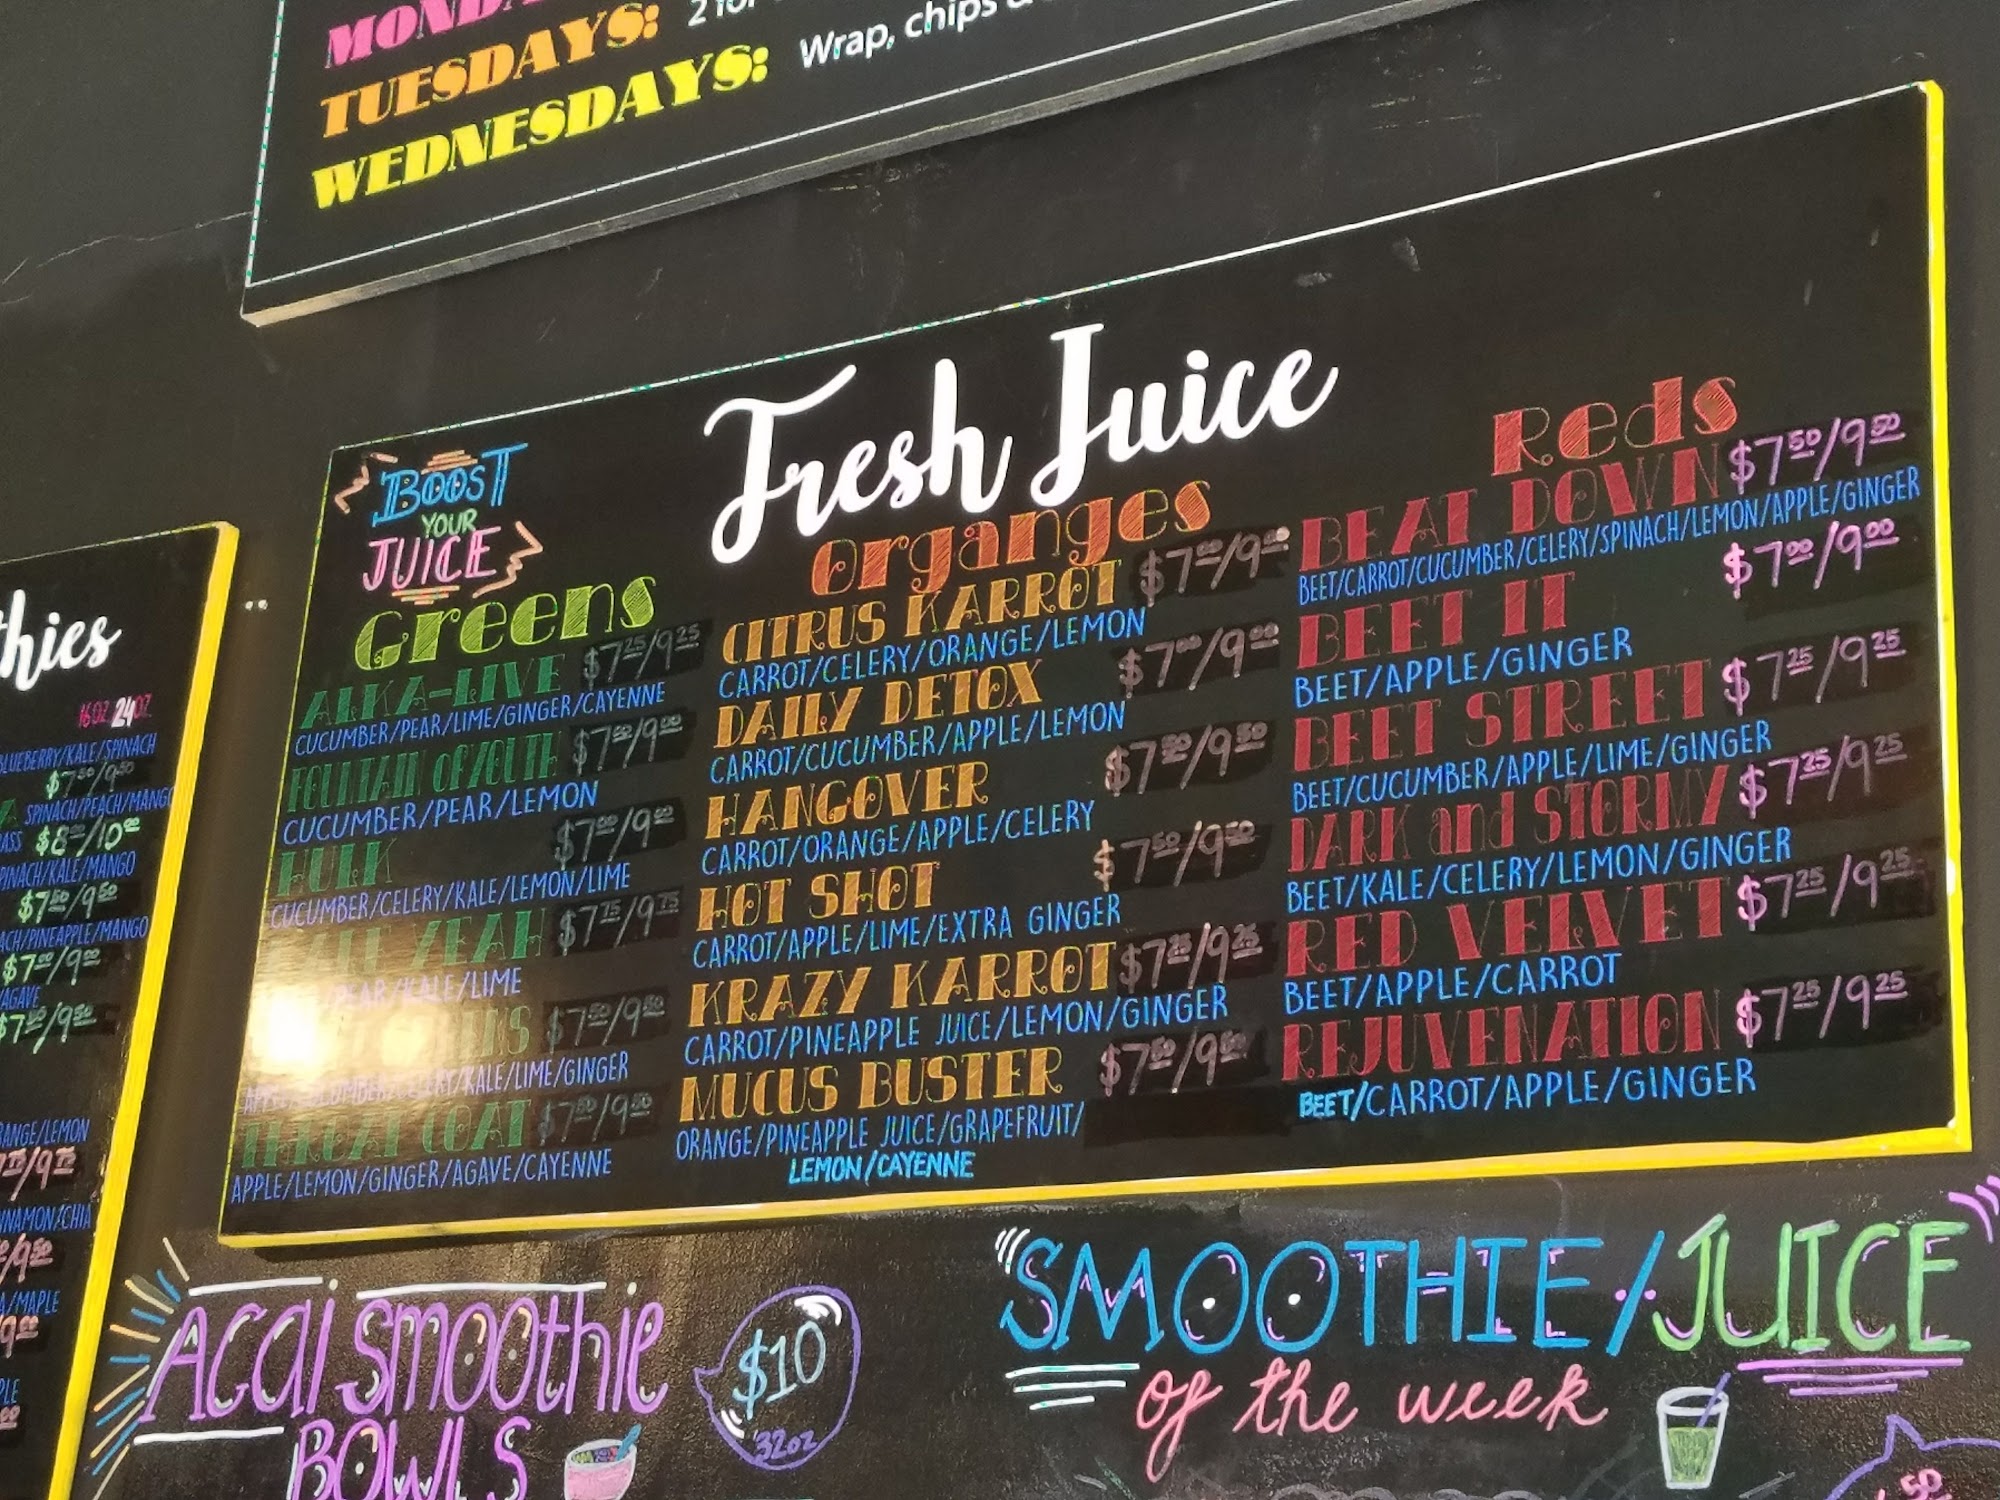 TUESDAYS: 2 for
WEDNESDAYS: Wrap, chips &
Fresh Juice
BOOST
YOUR
JUICE
Greens
ALKA-LIVE $7.25/9.25
CUCUMBER/PEAR/LIME/GINGER/CAYENNE
FOUNTAIN OF YOUTH $7.00/9.00
CUCUMBER/PEAR/LEMON
HULK $7.00/9.00
CUCUMBER/CELERY/KALE/LEMON/LIME
YEAH $7.75/9.75
PEAR/KALE/LIME
$7.50/9.50
APPLE/CUCUMBER/CELERY/KALE/LIME/GINGER
THROAT COAT $7.50/9.50
APPLE/LEMON/GINGER/AGAVE/CAYENNE
Organges
CITRUS KARROT $7.00/9.00
CARROT/CELERY/ORANGE/LEMON
DAILY DETOX $7.00/9.00
CARROT/CUCUMBER/APPLE/LEMON
HANGOVER $7.50/9.50
CARROT/ORANGE/APPLE/CELERY
HOT SHOT $7.50/9.50
CARROT/APPLE/LIME/EXTRA GINGER
KRAZY KARROT $7.25/9.25
CARROT/PINEAPPLE JUICE/LEMON/GINGER
MUCUS BUSTER $7.50/9.50
ORANGE/PINEAPPLE JUICE/GRAPEFRUIT/
LEMON/CAYENNE
Reds
BEAT DOWN $7.50/9.50
BEET/CARROT/CUCUMBER/CELERY/SPINACH/LEMON/APPLE/GINGER
BEET IT $7.00/9.00
BEET/APPLE/GINGER
BEET STREET $7.25/9.25
BEET/CUCUMBER/APPLE/LIME/GINGER
DARK and STORMY $7.25/9.25
BEET/KALE/CELERY/LEMON/GINGER
RED VELVET $7.25/9.25
BEET/APPLE/CARROT
REJUVENATION $7.25/9.25
BEET/CARROT/APPLE/GINGER
16OZ 24OZ
BLUEBERRY/KALE/SPINACH
$7.50/9.50
SPINACH/PEACH/MANGO
$8.00/10.00
SPINACH/KALE/MANGO
$7.50/9.50
/PINEAPPLE/MANGO
$7.00/9.00
/AGAVE
$7.50/9.50
ORANGE/LEMON
/9.75
CINNAMON/CHIA
/9.50
/MAPLE
Acai Smoothie
BOWLS
$10
32oz
SMOOTHIE/JUICE
of the week